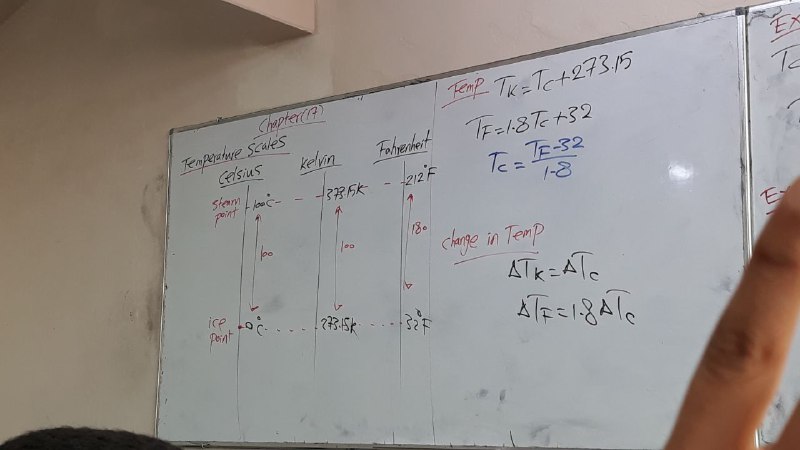 Chapter(17)
Temperature scales
Celsius
Kelvin
Fahrenheit
steam point
100°C
373.15K
212°F
100
100
180
ice point
0°C
273.15K
32°F
Temp
TK=TC+273.15
TF=1.8TC+32
TC=TF-32/1.8
change in Temp
ΔTK=ΔTC
ΔTF=1.8ΔTC
Ex